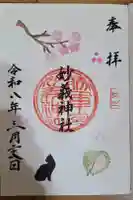 奉拝
妙義神社
令和八年三月 日